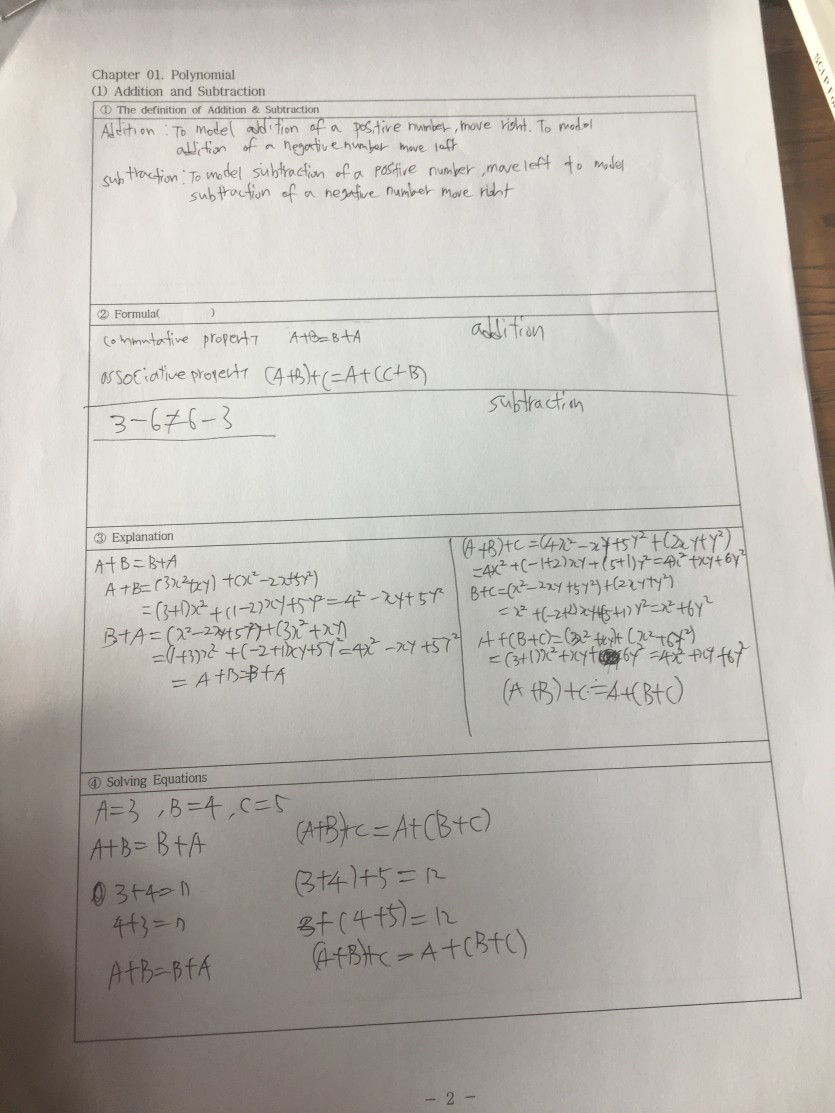 Chapter 01. Polynomial
(1) Addition and Subtraction
① The definition of Addition & Subtraction
Addition : To model addition of a positive number, move right. To model
addition of a negative number move left
subtraction : To model subtraction of a positive number, move left to model
subtraction of a negative number move right
② Formula( )
commutative property A+B=B+A addition
associative property (A+B)+C=A+(C+B)
subtraction
3-6≠6-3
③ Explanation
A+B=B+A
A+B=(3x²+xy)+(x²-2x+5y²)
=(3+1)x²+(1-2)xy+5y²=4²-xy+5y²
B+A=(x²-2xy+5y²)+(3x²+xy)
=(1+3)x²+(-2+1)xy+5y²=4x²-xy+5y²
= A+B=B+A
(A+B)+C=(4x²-xy+5y²+(2xy+y²)
=4x²+(-1+2)xy+(5+1)y²=4x²+xy+6y²
B+C=(x²-2xy+5y²)+(2xy+y²)
=x²+(-2+2)xy+(5+1)y²=x²+6y²
A+(B+C)=(3x²+xy)+(x²+6y²)
=(3+1)x²+xy+6y²=4x²+xy+6y²
(A+B)+C=A+(B+C)
④ Solving Equations
A=3 , B=4 , C=5
A+B=B+A
3+4=7
4+3=7
A+B=B+A
(A+B)+C=A+(B+C)
(3+4)+5=12
3+(4+5)=12
(A+B)+C=A+(B+C)
- 2 -